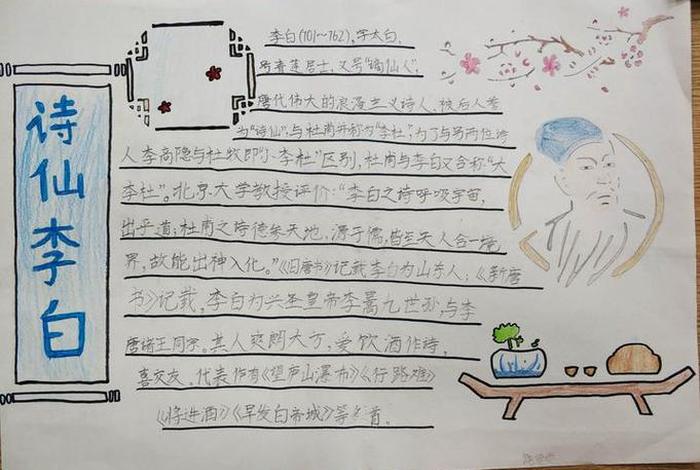 诗仙李白
李白(701～762),字太白,
号青莲居士,又号"谪仙人",
唐代伟大的浪漫主义诗人,被后人誉
为"诗仙",与杜甫并称为"李杜",为了与另两位诗
人李商隐与杜牧即"小李杜"区别,杜甫与李白又合称"大
李杜"。北京大学教授评价:"李白之诗呼吸宇宙,
出乎道;杜甫之诗德象天地,源于儒,皆至天人合一境
界,故能出神入化。"《旧唐书》记载李白为山东人;《新唐
书》记载,李白为兴圣皇帝李暠九世孙,与李
唐诸王同宗。其人爽朗大方,爱饮酒作诗,
喜交友。代表作有《望庐山瀑布》《行路难》
《将进酒》《早发白帝城》等 首。